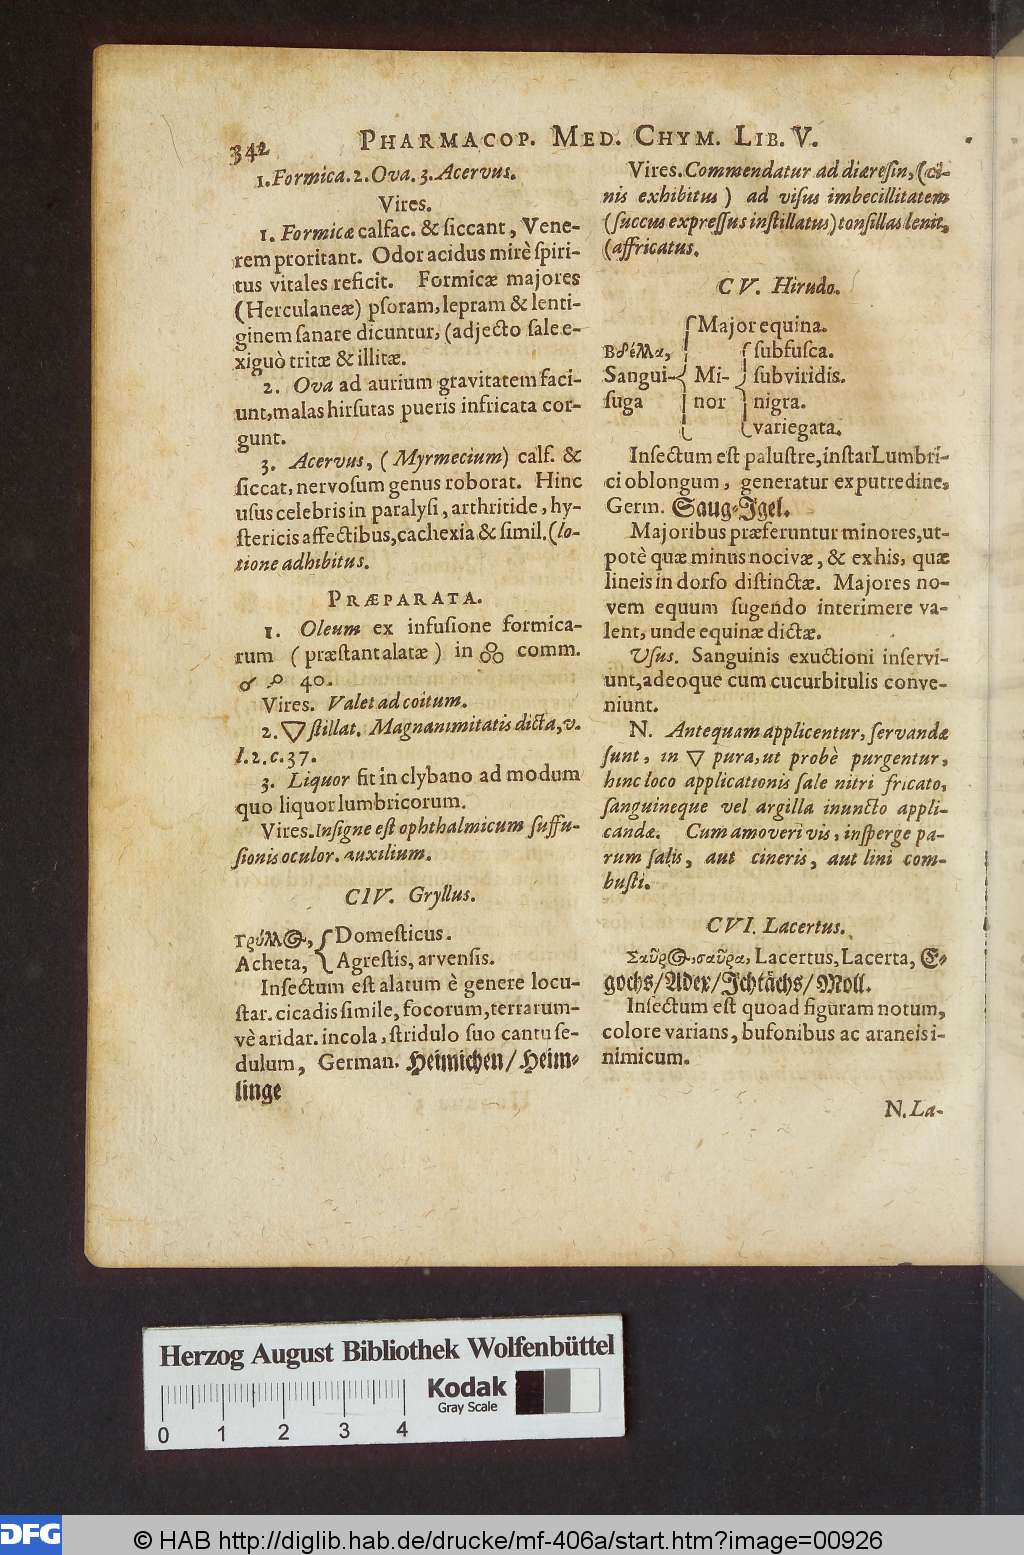 342
PHARMACOP. MED. CHYM. LIB. V.
1. Formica. 2. Ova. 3. Acervus.
Vires.
1. Formicæ calfac. & ſiccant, Vene-
rem proritant. Odor acidus mirè ſpiri-
tus vitales reficit. Formicæ majores
(Herculaneæ) pſoram, lepram & lenti-
ginem ſanare dicuntur, (adjecto ſale e-
xiguò tritæ & illitæ.
2. Ova ad aurium gravitatem faci-
unt, malas hirſutas pueris infricata cor-
gunt.
3. Acervus, (Myrmecium) calf. &
ſiccat, nervoſum genus roborat. Hinc
uſus celebris in paralyſi, arthritide, hy-
ſtericis affectibus, cachexia & ſimil. (lo-
tione adhibitus.
PRÆPARATA.
1. Oleum ex infuſione formica-
rum (præſtant alatæ) in comm.
40.
Vires. Valet ad coitum.
2. 🜄 ſtillat. Magnanimitatis dicta, v.
l. 2. c. 37.
3. Liquor fit in clybano ad modum
quo liquor lumbricorum.
Vires. Inſigne eſt ophthalmicum ſuffu-
ſionis oculor. auxilium.
CIV. Gryllus.
Γρύλλος, { Domeſticus.
Acheta, { Agreſtis, arvenſis.
Inſectum eſt alatum è genere locu-
ſtar. cicadis ſimile, focorum, terrarum-
vè aridar. incola, ſtridulo ſuo cantu ſe-
dulum, German. Heimichen/ Heim-
linge
Vires. Commendatur ad diæreſin, (ci-
nis exhibitus) ad viſus imbecillitatem
(ſuccus expreſſus inſtillatus) tonſillas lenit,
(affricatus.
CV. Hirudo.
Major equina.
Βδέλλα, ſubfuſca.
Sangui- Mi- ſubviridis.
ſuga nor nigra.
variegata.
Inſectum eſt paluſtre, inſtar Lumbri-
ci oblongum, generatur ex putredine,
Germ. Saug-Igel.
Majoribus præferuntur minores, ut-
potè quæ minus nocivæ, & ex his, quæ
lineis in dorſo diſtinctæ. Majores no-
vem equum ſugendo interimere va-
lent, unde equinæ dictæ.
Uſus. Sanguinis exuctioni inſervi-
unt, adeoque cum cucurbitulis conve-
niunt.
N. Antequam applicentur, ſervandæ
ſunt, in 🜄 pura, ut probè purgentur,
hinc loco applicationis ſale nitri fricato,
ſanguineque vel argilla inuncto appli-
candæ. Cum amoveri vis, inſperge pa-
rum ſalis, aut cineris, aut lini com-
buſti.
CVI. Lacertus.
Σαῦρος, σαῦρα, Lacertus, Lacerta, E-
gochs/ Adex/ Ichtächs/ Moll.
Inſectum eſt quoad figuram notum,
colore varians, bufonibus ac araneis i-
nimicum.
N. La-
Herzog August Bibliothek Wolfenbüttel
Kodak
Gray Scale
0 1 2 3 4
DFG
© HAB http://diglib.hab.de/drucke/mf-406a/start.htm?image=00926